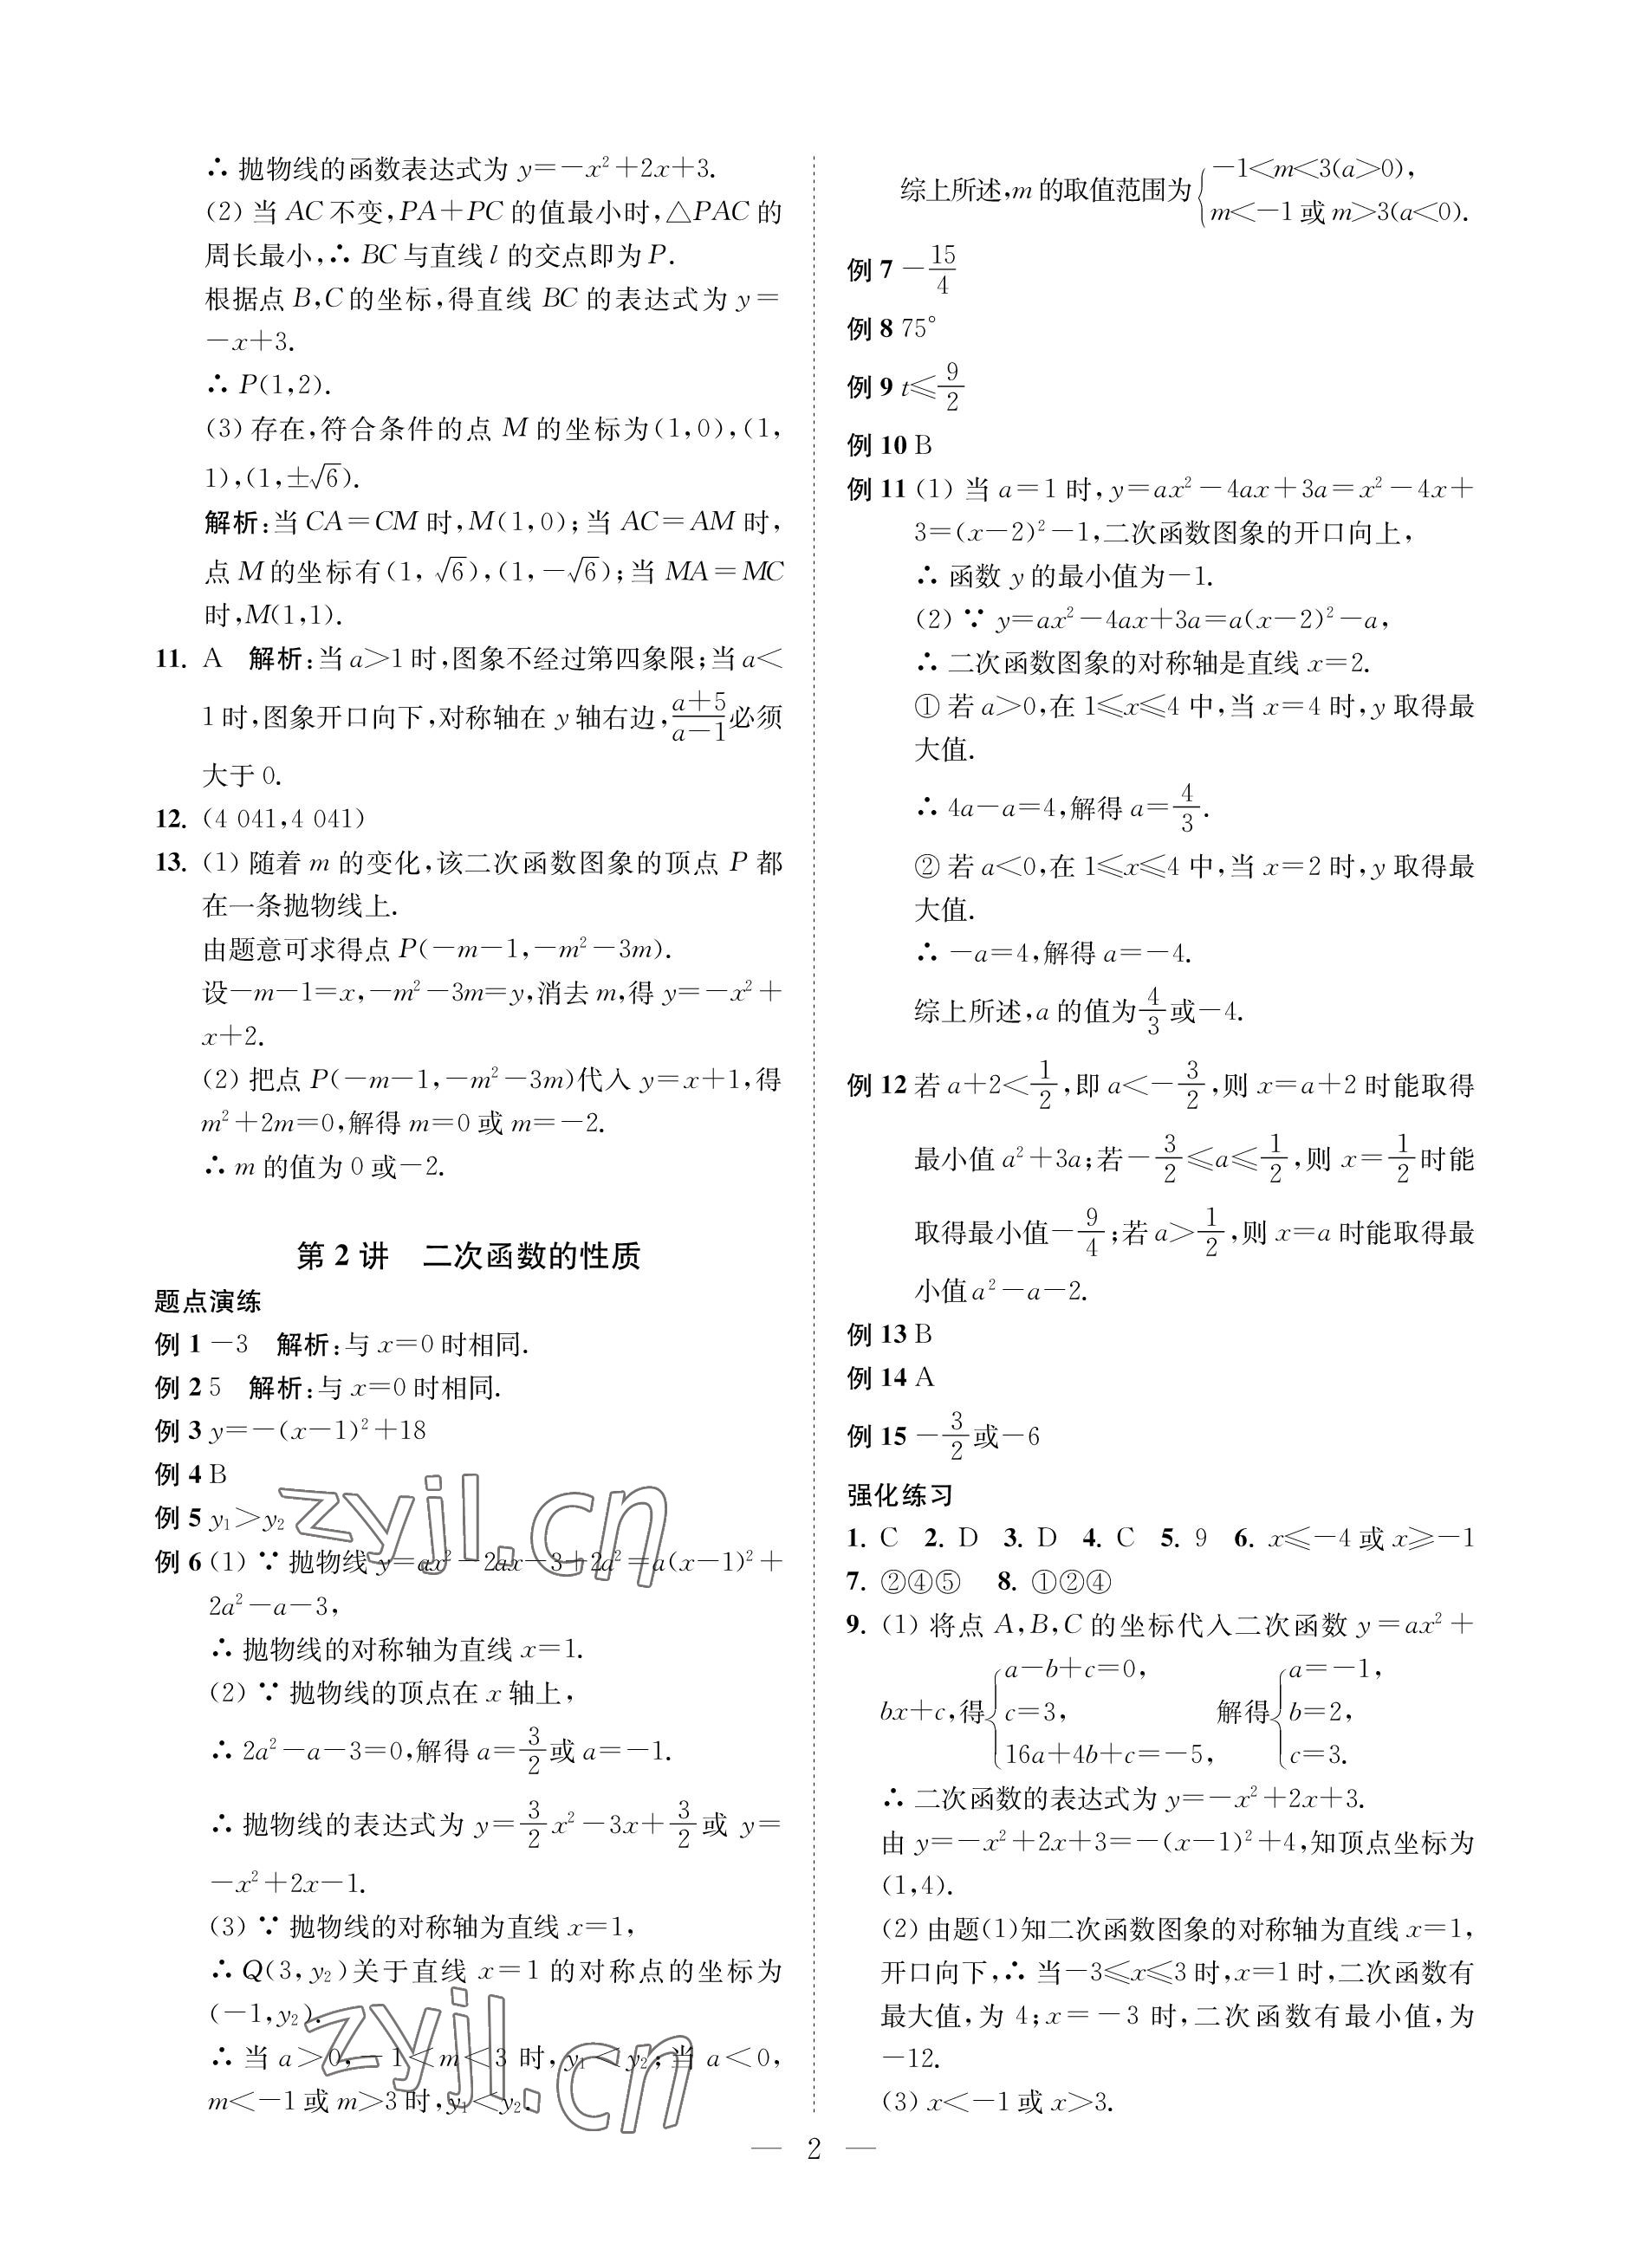 ∴ 抛物线的函数表达式为 y=－x²+2x+3.
(2) 当 AC 不变,PA+PC 的值最小时,△PAC 的
周长最小,∴ BC 与直线 l 的交点即为 P.
根据点 B,C 的坐标,得直线 BC 的表达式为 y=
－x+3.
∴ P(1,2).
(3) 存在,符合条件的点 M 的坐标为(1,0),(1,
1),(1,±√6).
解析:当 CA=CM 时,M(1,0);当 AC=AM 时,
点 M 的坐标有(1, √6),(1,－√6);当 MA=MC
时,M(1,1).
11. A 解析:当 a>1 时,图象不经过第四象限;当 a<
1 时,图象开口向下,对称轴在 y 轴右边,(a+5)/(a－1)必须
大于 0.
12. (4 041,4 041)
13. (1) 随着 m 的变化,该二次函数图象的顶点 P 都
在一条抛物线上.
由题意可求得点 P(－m－1,－m²－3m).
设－m－1=x,－m²－3m=y,消去 m,得 y=－x²+
x+2.
(2) 把点 P(－m－1,－m²－3m)代入 y=x+1,得
m²+2m=0,解得 m=0 或 m=－2.
∴ m 的值为 0 或－2.
第 2 讲 二次函数的性质
题点演练
例 1 －3 解析:与 x=0 时相同.
例 2 5 解析:与 x=0 时相同.
例 3 y=－(x－1)²+18
例 4 B
例 5 y₁>y₂
例 6 (1) ∵ 抛物线 y=ax²－2ax－3+2a²=a(x－1)²+
2a²－a－3,
∴ 抛物线的对称轴为直线 x=1.
(2) ∵ 抛物线的顶点在 x 轴上,
∴ 2a²－a－3=0,解得 a=3/2或 a=－1.
∴ 抛物线的表达式为 y=3/2x²－3x+3/2或 y=
－x²+2x－1.
(3) ∵ 抛物线的对称轴为直线 x=1,
∴ Q(3,y₂)关于直线 x=1 的对称点的坐标为
(－1,y₂).
∴ 当 a>0,－1<m<3 时,y₁<y₂;当 a<0,
m<－1 或 m>3 时,y₁<y₂.
综上所述,m 的取值范围为{－1<m<3(a>0),
m<－1 或 m>3(a<0).
例 7 －15/4
例 8 75°
例 9 t≤9/2
例 10 B
例 11 (1) 当 a=1 时,y=ax²－4ax+3a=x²－4x+
3=(x－2)²－1,二次函数图象的开口向上,
∴ 函数 y 的最小值为－1.
(2) ∵ y=ax²－4ax+3a=a(x－2)²－a,
∴ 二次函数图象的对称轴是直线 x=2.
① 若 a>0,在 1≤x≤4 中,当 x=4 时,y 取得最
大值.
∴ 4a－a=4,解得 a=4/3.
② 若 a<0,在 1≤x≤4 中,当 x=2 时,y 取得最
大值.
∴ －a=4,解得 a=－4.
综上所述,a 的值为4/3或－4.
例 12 若 a+2<1/2,即 a<－3/2,则 x=a+2 时能取得
最小值 a²+3a;若－3/2≤a≤1/2,则 x=1/2时能
取得最小值－9/4;若 a>1/2,则 x=a 时能取得最
小值 a²－a－2.
例 13 B
例 14 A
例 15 －3/2或－6
强化练习
1. C 2. D 3. D 4. C 5. 9 6. x≤－4 或 x≥－1
7. ②④⑤ 8. ①②④
9. (1) 将点 A,B,C 的坐标代入二次函数 y=ax²+
bx+c,得{a－b+c=0, c=3, 16a+4b+c=－5, 解得{a=－1, b=2, c=3.
∴ 二次函数的表达式为 y=－x²+2x+3.
由 y=－x²+2x+3=－(x－1)²+4,知顶点坐标为
(1,4).
(2) 由题(1)知二次函数图象的对称轴为直线 x=1,
开口向下,∴ 当－3≤x≤3 时,x=1 时,二次函数有
最大值,为 4;x=－3 时,二次函数有最小值,为
－12.
(3) x<－1 或 x>3.
— 2 —
zyjl.cn
zyjl.cn